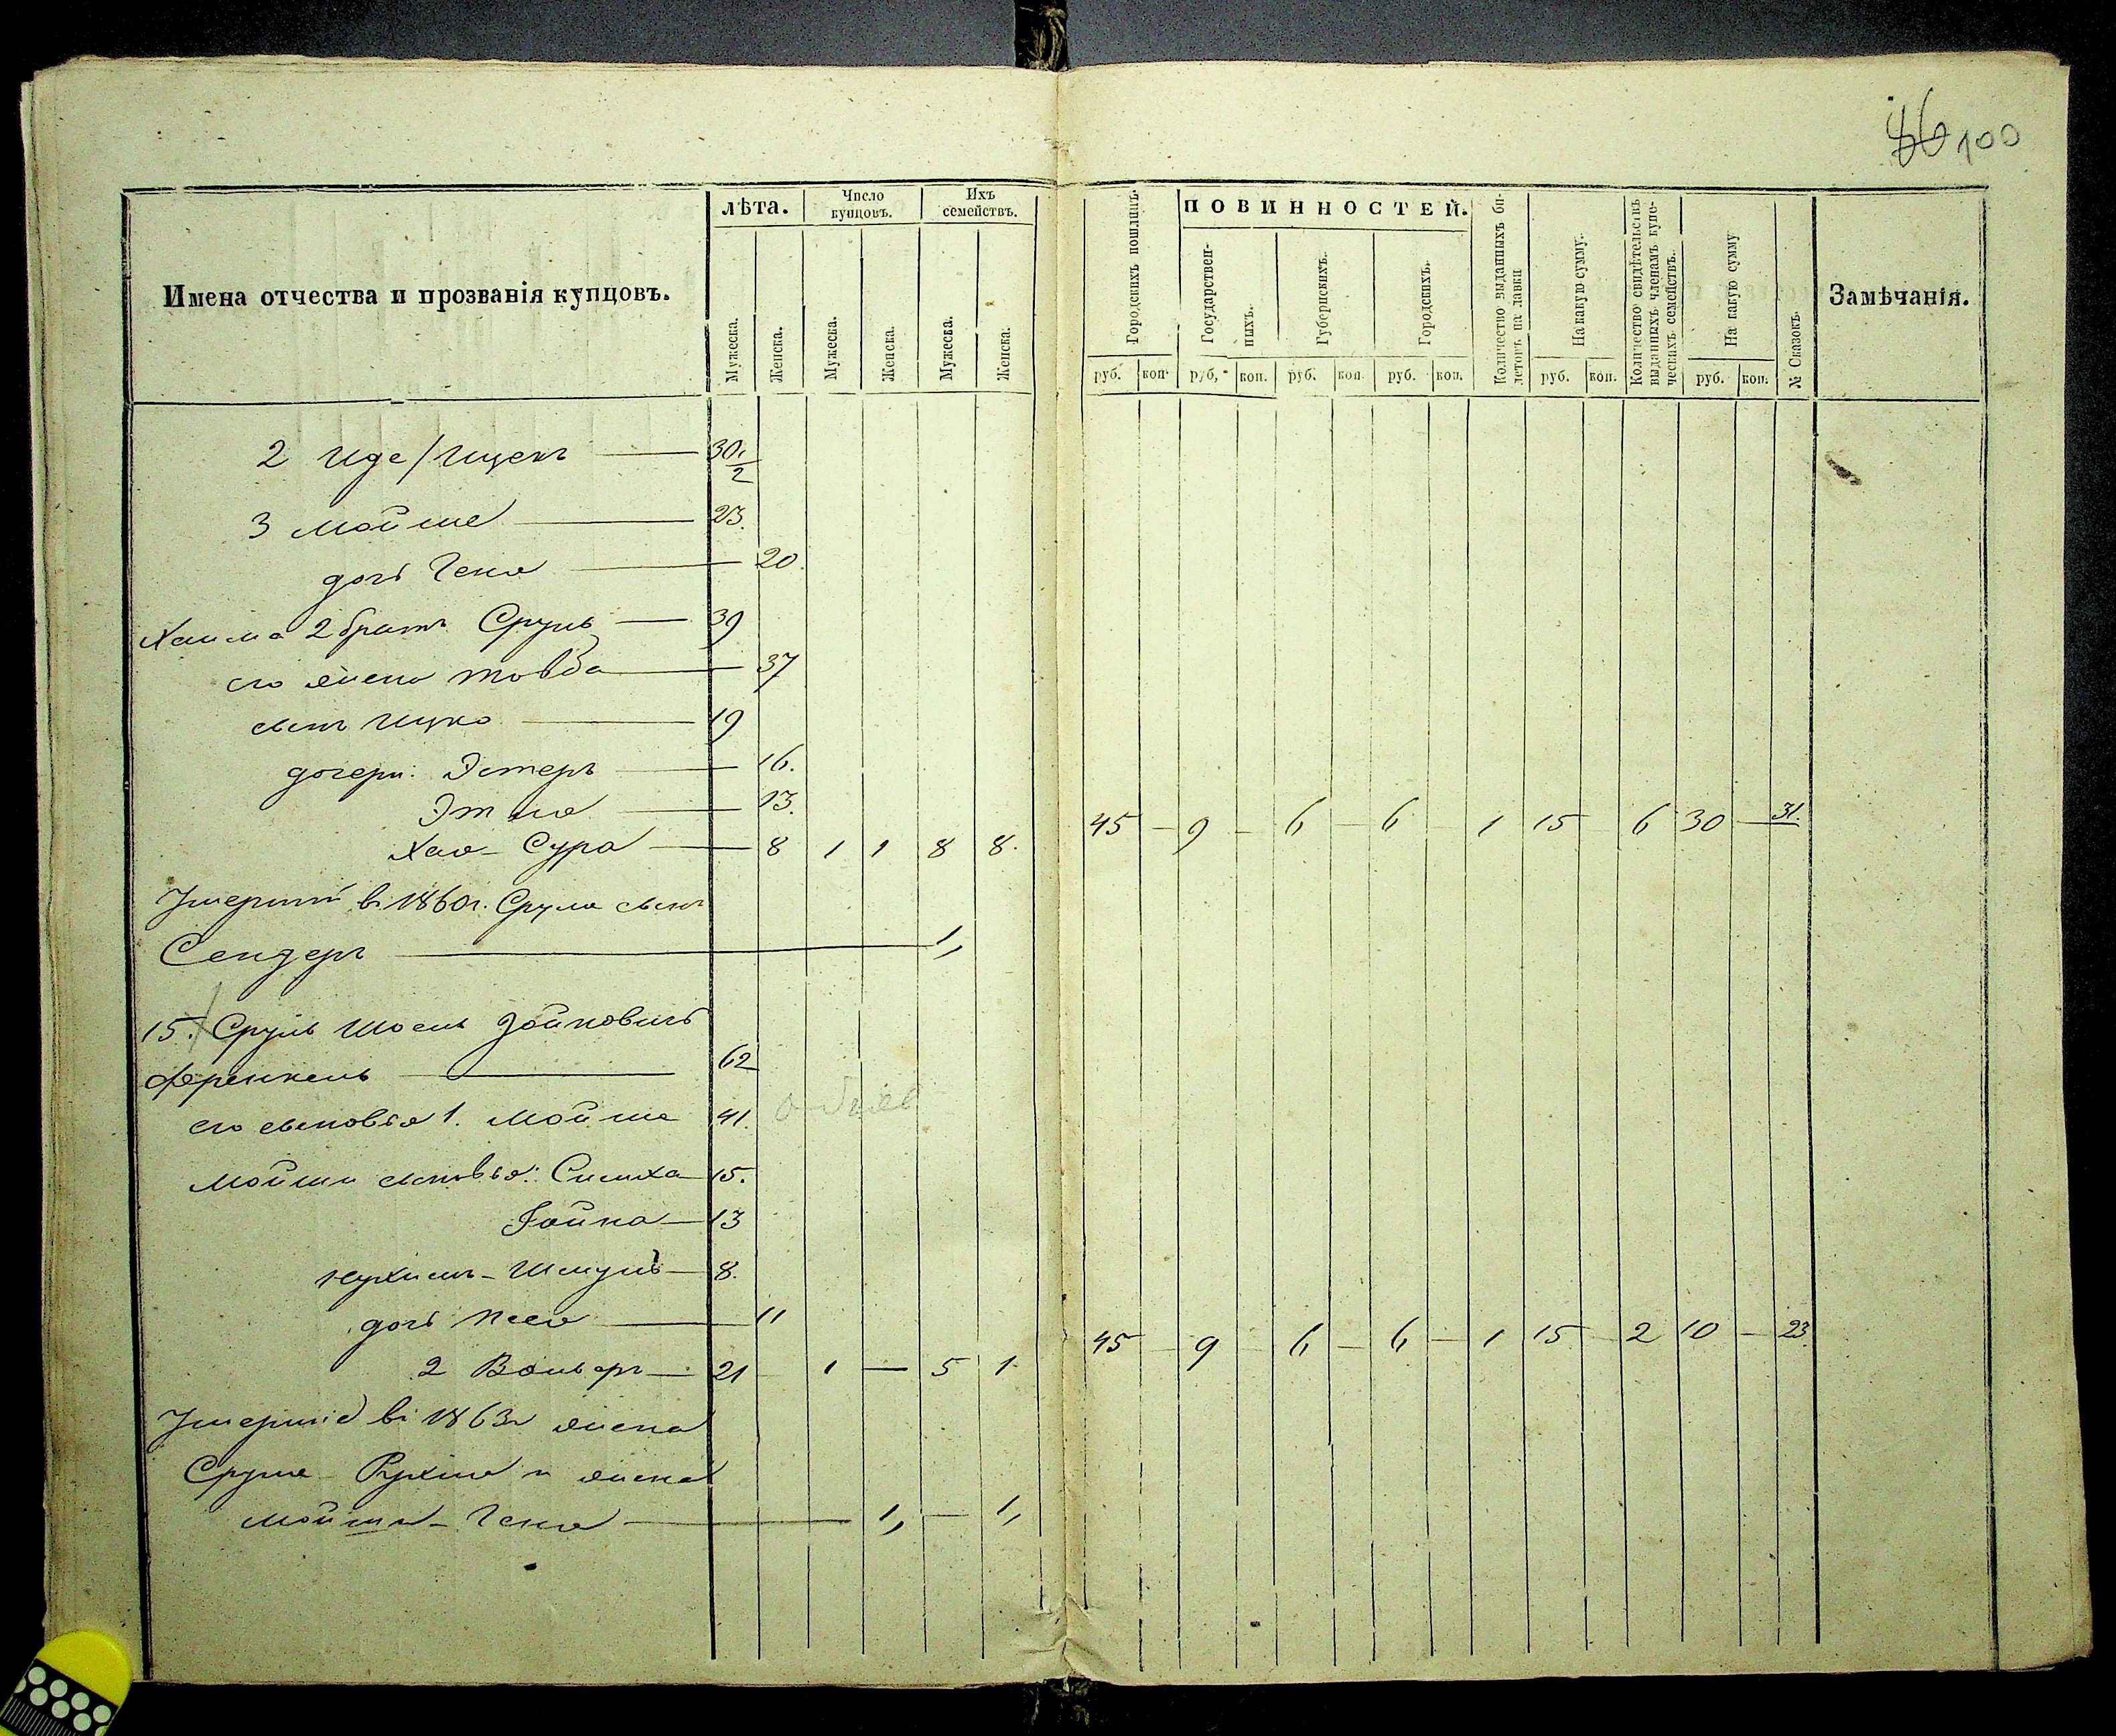 86 100
Имена отчества и прозванія купцовъ.
лѣта.
Число купцовъ.
Ихъ семействъ.
Мужеска.
Женска.
Мужеска.
Женска.
Мужеска.
Женска.
Городскихъ пошлинъ.
ПОВИННОСТЕЙ.
Государственныхъ.
Губернскихъ.
Городскихъ.
Количество выданныхъ билетовъ на лавки
На какую сумму.
Количество свидѣтельствъ выданныхъ членамъ купеческихъ семействъ.
На какую сумму
№ Сказокъ.
Замѣчанія.
руб. коп. руб. коп. руб. коп. руб. коп. руб. коп. руб. коп.
2 Иде/Ицекъ — 30 1/2
3 Мойше — 23.
дочь Геня — 20.
Хаима 2 братъ Сруль — 39
его жена Товба — 37
сынъ Ицко — 19
дочери: Эстеръ — 16.
Этля — 13.
Хая-Сура — 8 1 1 8 8. 45 — 9 — 6 — 6 — 1 15 — 6 30 — 31.
Умершій въ 1860г. Сруля сынъ
Сендеръ — 1,,
15. Сруль Шоель Зойновичъ
Френкель — 62
его сыновья 1. Мойше 41.
Мойши сыновья: Симха — 15.
Зойна — 13
Нухимъ-Шмуль — 8.
дочь Песя — 11
2 Вольфъ — 21 1 — 5 1 45 — 9 — 6 — 6 — 1 15 — 2 10 — 23.
Умершіе въ 1863г жена
Сруля Рухля и жена
Мойши - Геня — 1,, — 1,,